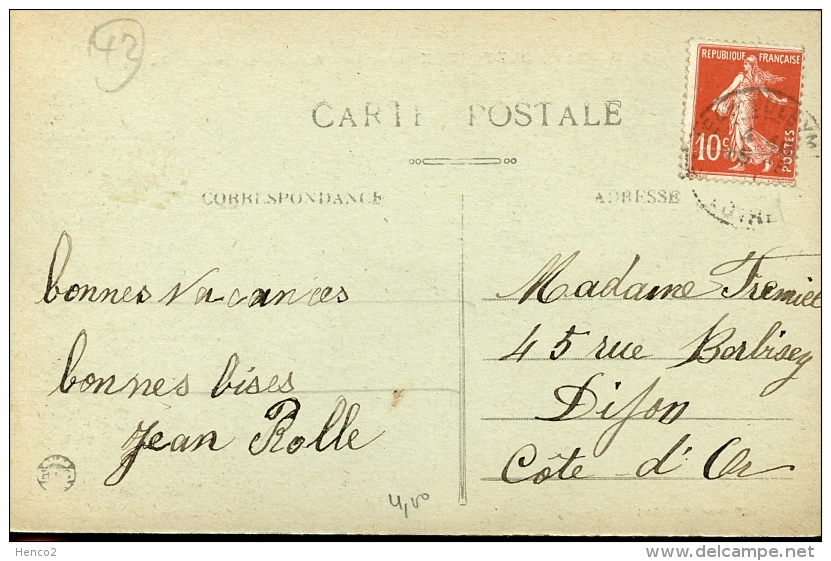 42
CARTE POSTALE
REPUBLIQUE FRANÇAISE
10c
POSTES
CORRESPONDANCE
ADRESSE
bonnes vacances
bonnes bises
Jean Rolle
Madame Fremiet
45 rue Berbisey
Dijon
Côte-d'Or
4,00
Henco2
www.delcampe.net